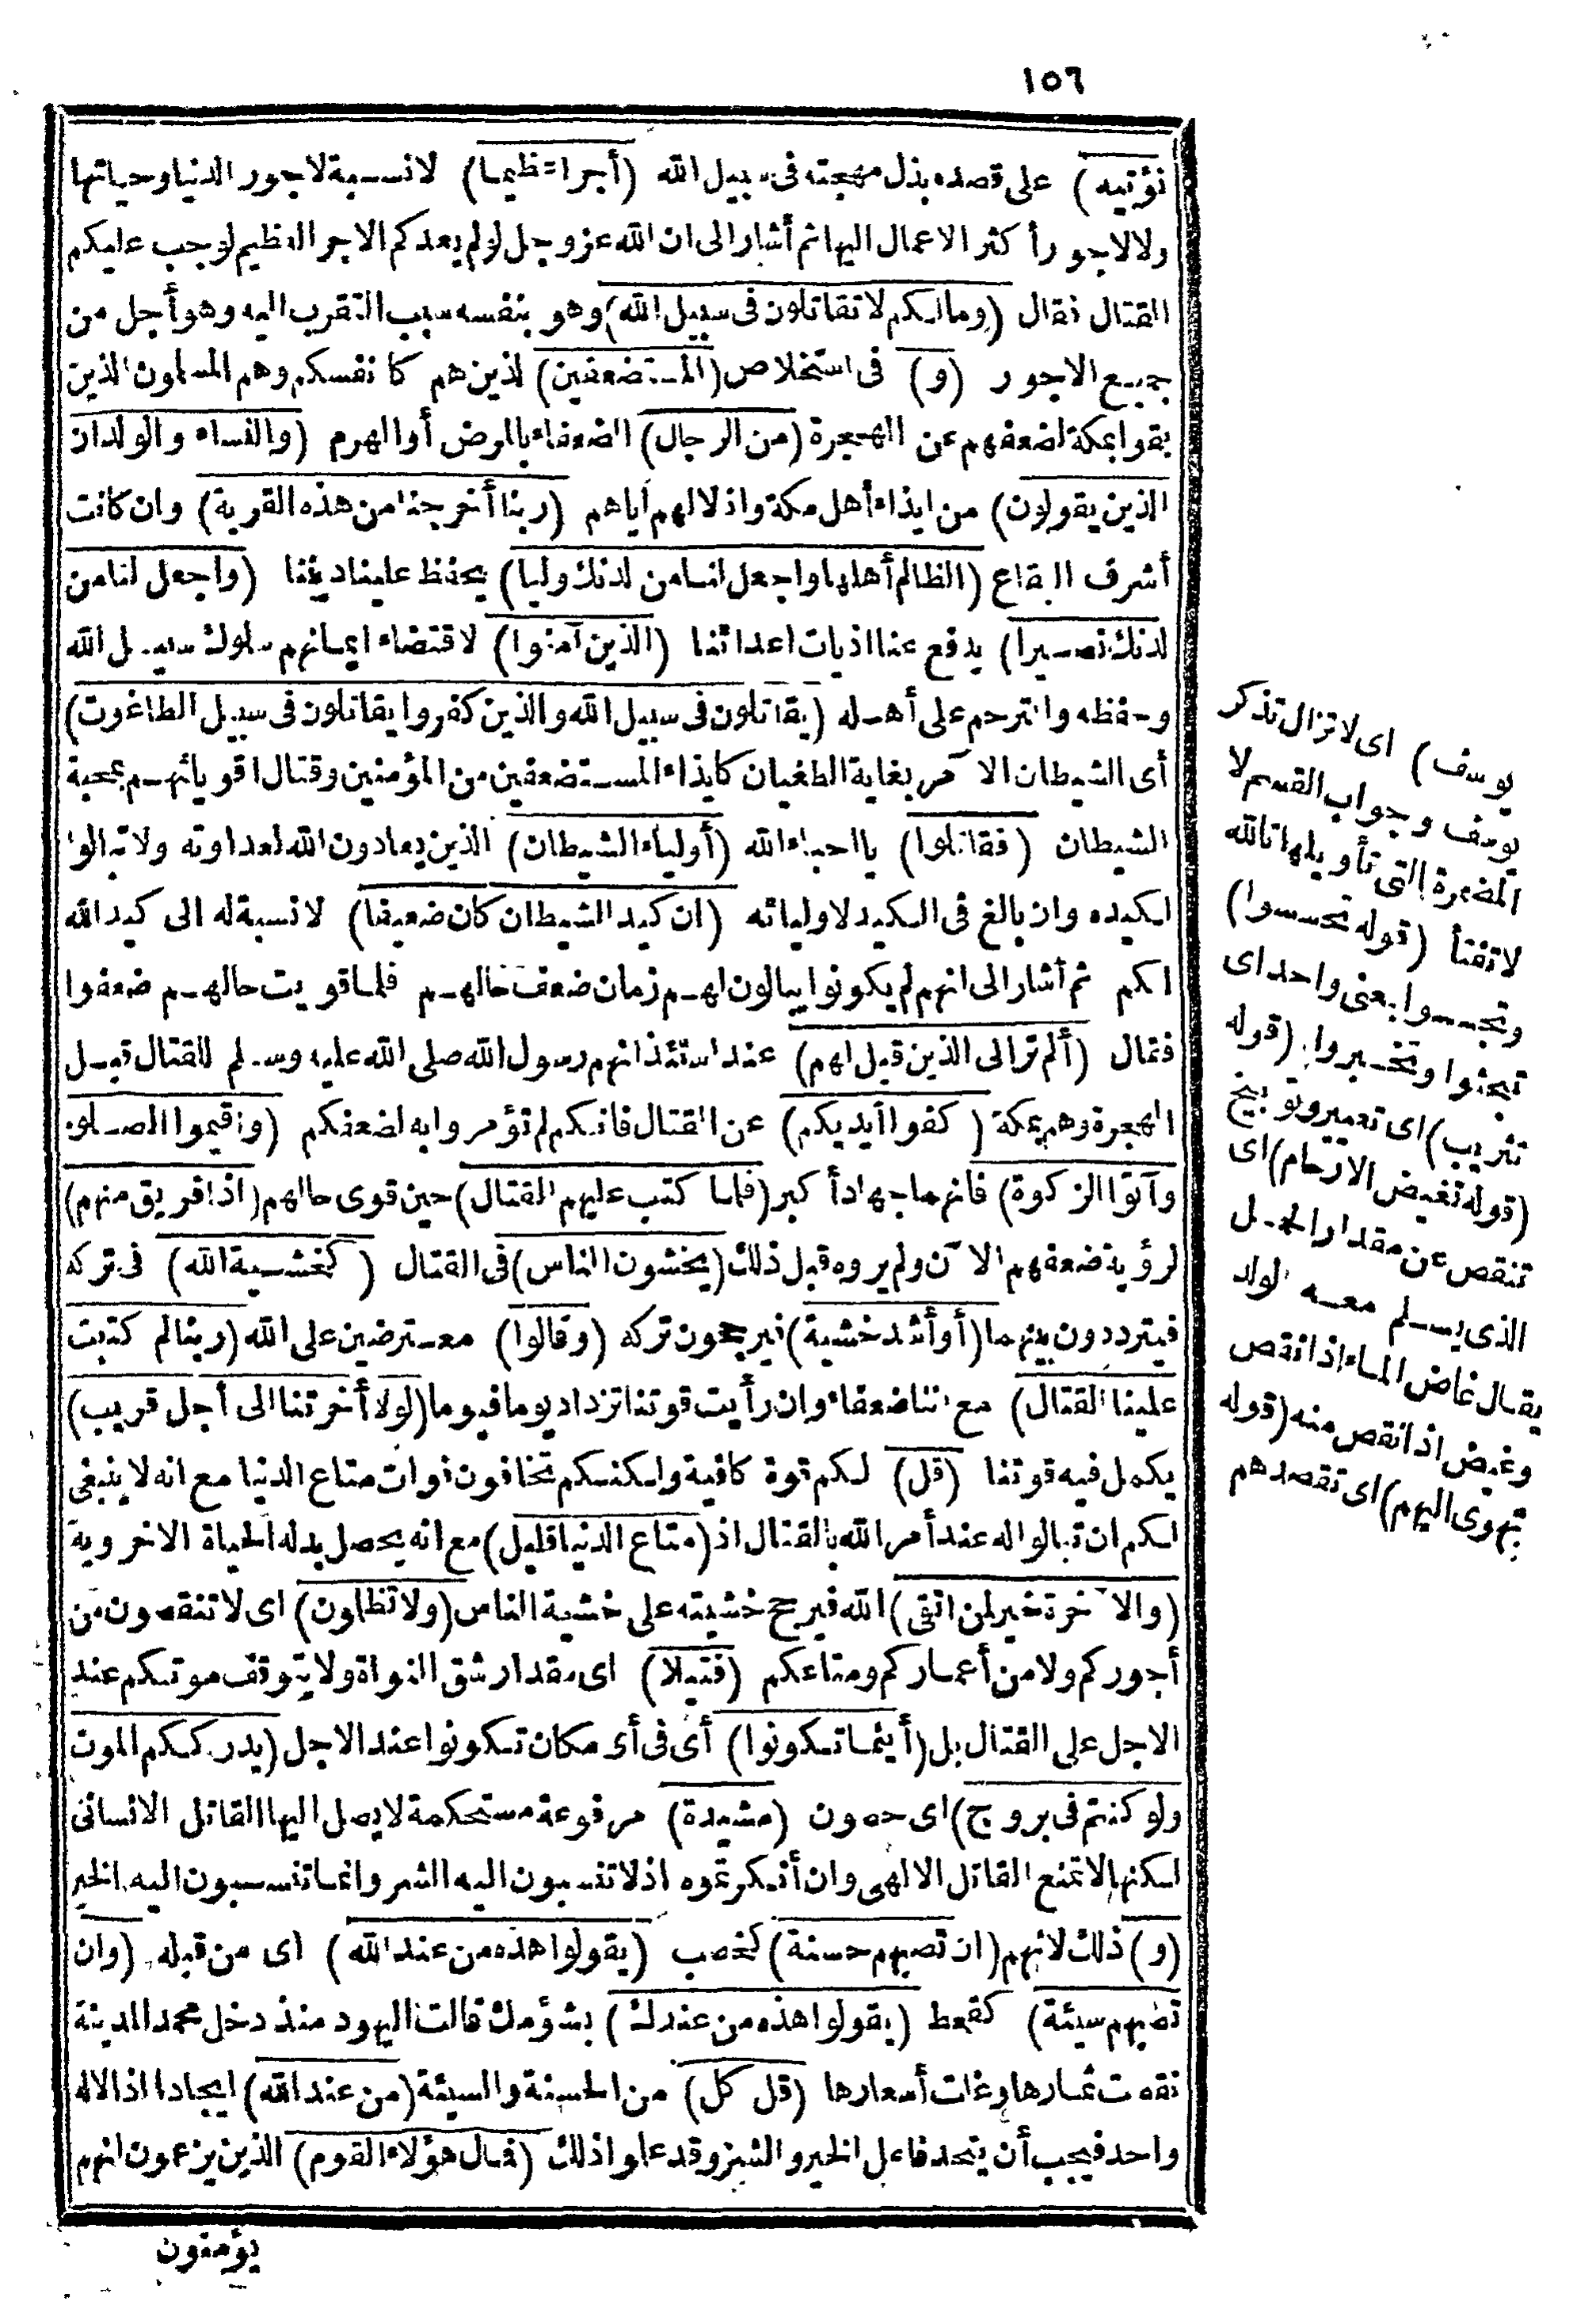 ١٥٦
نؤتيه) على قصده بذل مهجته فى سبيل الله (أجرا عظيما) لا نسبة لاجور الدنيا وحياتها
ولا لاجور أكثر الاعمال اليها ثم أشار الى ان الله عز وجل لو لم يعدكم الاجر العظيم لوجب عليكم
القتال فقال (وما لكم لا تقاتلون فى سبيل الله) وهو بنفسه سبب التقرب اليه وهو أجل من
جميع الاجور (و) فى استخلاص (المستضعفين) لذين هم كانفسكم وهم المسلمون الذين
بقوا بمكة لضعفهم عن الهجرة (من الرجال) الضعفاء بالمرض أو الهرم (والنساء والولدان
الذين يقولون) من ايذاء أهل مكة واذلالهم اياهم (ربنا أخرجنا من هذه القرية) وان كانت
أشرف البقاع (الظالم أهلها واجعل لنا من لدنك وليا) يحفظ علينا ديننا (واجعل لنا من
لدنك نصيرا) يدفع عنا اذيات اعدائنا (الذين آمنوا) لاقتضاء ايمانهم سلوك سبيل الله
وحفظه والترحم على أهله (يقاتلون فى سبيل الله والذين كفروا يقاتلون فى سبيل الطاغوت)
أى الشيطان الآمر بغاية الطغيان كايذاء المستضعفين من المؤمنين وقتال اقويائهم بمحبة
الشيطان (فقاتلوا) يا احباء الله (أولياء الشيطان) الذين يعادون الله لعداوته ولا تبالوا
لكيده وان بالغ فى الكيد لاوليائه (ان كيد الشيطان كان ضعيفا) لا نسبة له الى كيد الله
لكم ثم أشار الى انهم لم يكونوا يبالون لهم زمان ضعف حالهم فلما قويت حالهم ضعفوا
فقال (ألم تر الى الذين قيل لهم) عند استئذانهم رسول الله صلى الله عليه وسلم للقتال قبل
الهجرة وهم بمكة (كفوا أيديكم) عن القتال فانكم لم تؤمروا به لضعفكم (واقيموا الصلوة
وآتوا الزكوة) فانهما جهاد أكبر (فلما كتب عليهم القتال) حين قوى حالهم (اذا فريق منهم)
لرؤية ضعفهم الآن ولم يروه قبل ذلك (يخشون الناس) فى القتال (كخشية الله) فى تركه
فيترددون بينهما (أو أشد خشية) فيرجحون تركه (وقالوا) معترضين على الله (ربنا لم كتبت
علينا القتال) مع اننا ضعفاء وان رأيت قوتنا تزداد يوما فيوما (لولا أخرتنا الى أجل قريب)
يكمل فيه قوتنا (قل) لكم قوة كافية ولكنكم تخافون فوات متاع الدنيا مع انه لا ينبغى
لكم ان تبالوا له عند أمر الله بالقتال اذ (متاع الدنيا قليل) مع انه يحصل بدله الحياة الاخروية
(والآخرة خير لمن اتقى) الله فيرجح خشيته على خشية الناس (ولا تظلمون) اى لا تنقصون من
أجوركم ولا من أعماركم ومتاعكم (فتيلا) اى مقدار شق النواة ولا يتوقف موتكم عند
الاجل على القتال بل (أينما تكونوا) أى فى أى مكان تكونوا عند الاجل (يدرككم الموت
ولو كنتم فى بروج) اى حصون (مشيدة) مرفوعة مستحكمة لا يصل اليها القاتل الانسانى
لكنها لا تمنع القاتل الالهى وان أنكرتموه اذ لا تنسبون اليه الشر وانما تنسبون اليه الخير
(و) ذلك لانهم (ان تصبهم حسنة) كخصب (يقولوا هذه من عند الله) اى من قبله (وان
تصبهم سيئة) كقحط (يقولوا هذه من عندك) بشؤمك قالت اليهود منذ دخل محمد المدينة
نقصت ثمارها وغلت أسعارها (قل كل) من الحسنة والسيئة (من عند الله) ايجادا اذ الاله
واحد فيجب أن يتحد فاعل الخير والشر وقد علموا ذلك (فمال هؤلاء القوم) الذين يزعمون انهم
يؤمنون
يوسف) اى لا تزال تذكر
يوسف وجواب القسم لا
المضمرة التى تأويلها تالله
لا تفتأ (قوله تحسسوا)
وتجسسوا بمعنى واحد اى
تبحثوا وتخبروا (قوله
تثريب) اى تعيير وتوبيخ
(قوله تغيض الارحام) اى
تنقص عن مقدار الحمل
الذى يسلم معه الولد
يقال غاض الماء اذا نقص
وغيض اذا نقص منه (قوله
تهوى اليهم) اى تقصدهم